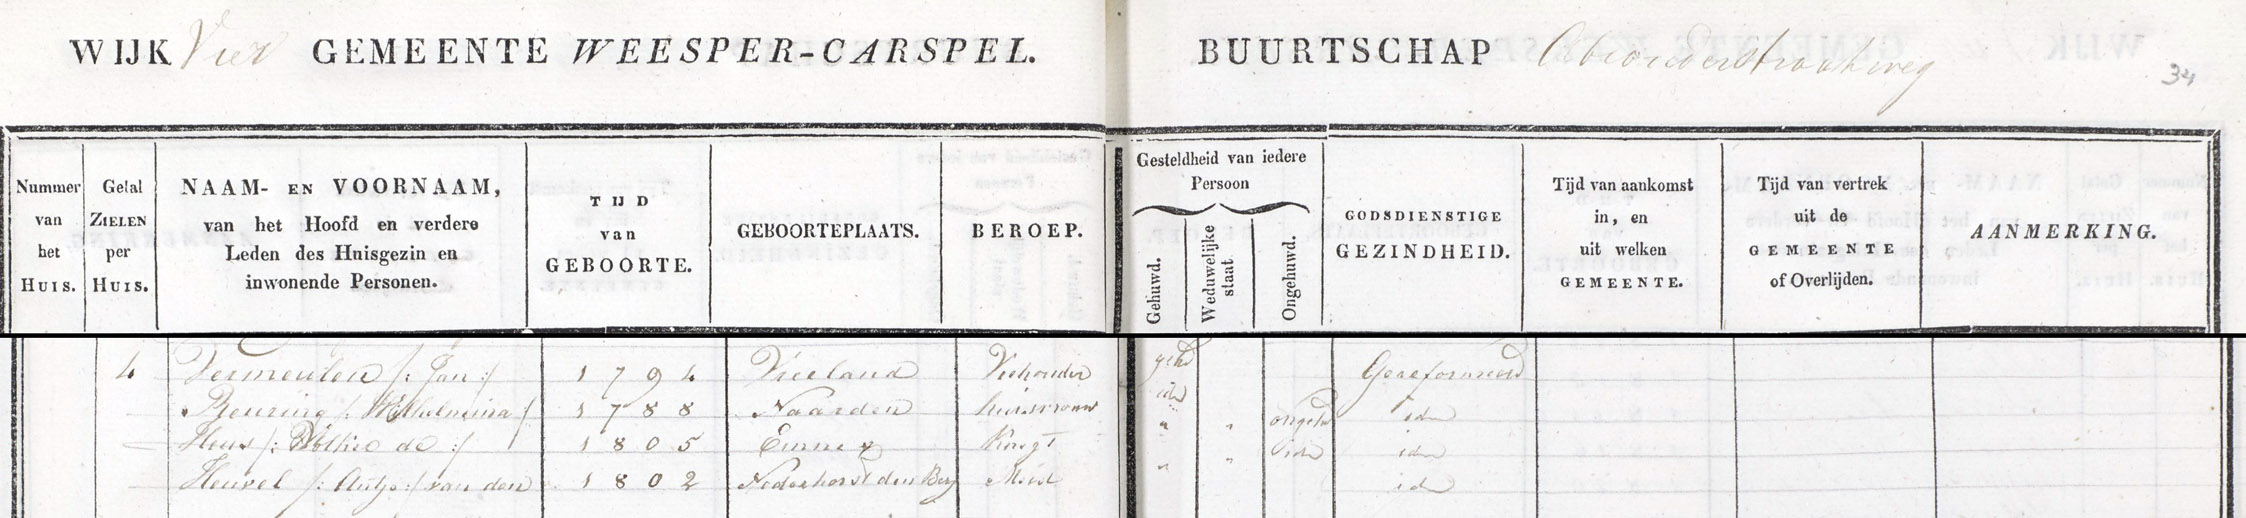 WIJK Vier GEMEENTE WEESPER-CARSPEL. BUURTSCHAP
34
Nummer van het HUIS.
Getal ZIELEN per HUIS.
NAAM- EN VOORNAAM, van het Hoofd en verdere Leden des Huisgezin en inwonende Personen.
TIJD van GEBOORTE.
GEBOORTEPLAATS.
BEROEP.
Gesteldheid van iedere Persoon
Gehuwd.
Weduwelijke staat.
Ongehuwd.
GODSDIENSTIGE GEZINDHEID.
Tijd van aankomst in, en uit welken GEMEENTE.
Tijd van vertrek uit de GEMEENTE of Overlijden.
AANMERKING.
4 Vermeulen /: Jan :/ 1794 Vreeland Veehouder gehd Gereformeerd
Reuring /: Wilhelmina :/ 1788 Naarden huisvrouw id id
Heus /: de :/ 1805 Emnes Knegt " " ongehd id
Heuvel /: Antje :/ van den 1802 Nederhorst den Berg Meid " " id id